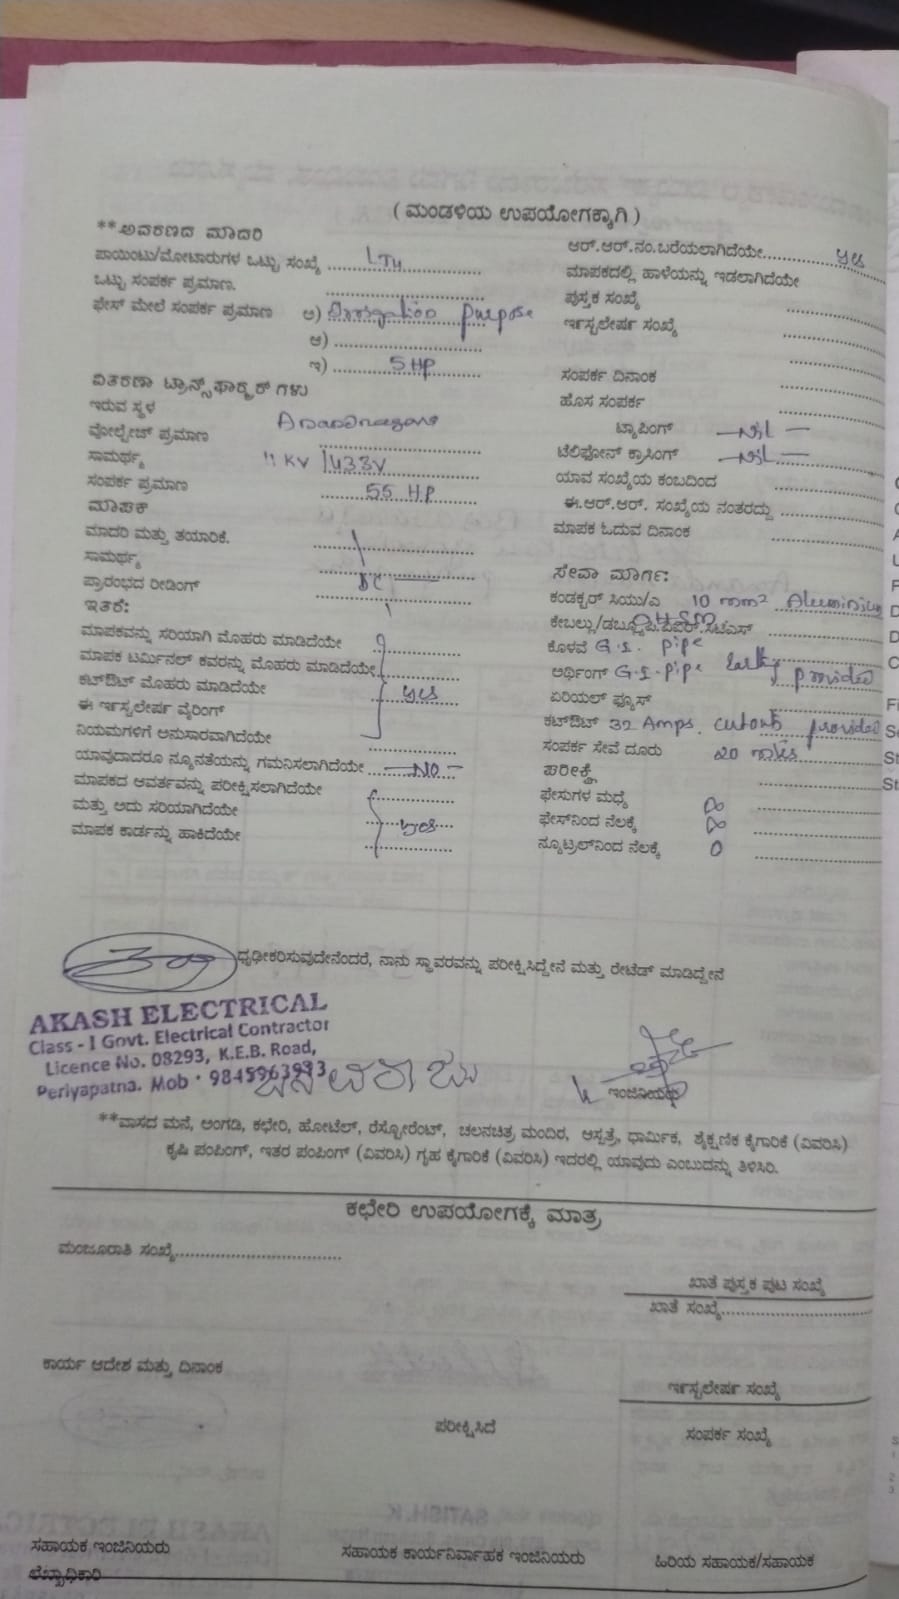 ( ಮಂಡಳಿಯ ಉಪಯೋಗಕ್ಕಾಗಿ )
**ಅವರಣದ ಮಾದರಿ
ಪಾಯಿಂಟು/ಮೋಟಾರುಗಳ ಒಟ್ಟು ಸಂಖ್ಯೆ
ಒಟ್ಟು ಸಂಪರ್ಕ ಪ್ರಮಾಣ.
ಫೇಸ್ ಮೇಲೆ ಸಂಪರ್ಕ ಪ್ರಮಾಣ ಅ) purpose
ಆ)
ಇ) 5 HP
ವಿತರಣಾ ಟ್ರಾನ್ಸ್‌ಫಾರ್ಮರ್‌ಗಳು
ಇರುವ ಸ್ಥಳ
ವೋಲ್ಟೇಜ್ ಪ್ರಮಾಣ
ಸಾಮರ್ಥ್ಯ 11 KV / 433V
ಸಂಪರ್ಕ ಪ್ರಮಾಣ 55 HP
ಮಾಪಕ
ಮಾದರಿ ಮತ್ತು ತಯಾರಿಕೆ.
ಸಾಮರ್ಥ್ಯ
ಪ್ರಾರಂಭದ ರೀಡಿಂಗ್
ಇತರೆ:
ಮಾಪಕವನ್ನು ಸರಿಯಾಗಿ ಮೊಹರು ಮಾಡಿದೆಯೇ
ಮಾಪಕ ಟರ್ಮಿನಲ್ ಕವರನ್ನು ಮೊಹರು ಮಾಡಿದೆಯೇ
ಕಟ್‌ಔಟ್ ಮೊಹರು ಮಾಡಿದೆಯೇ yes
ಈ ಇನ್ಸ್ಟಲೇಷನ್ ವೈರಿಂಗ್
ನಿಯಮಗಳಿಗೆ ಅನುಸಾರವಾಗಿದೆಯೇ
ಯಾವುದಾದರೂ ನ್ಯೂನತೆಯನ್ನು ಗಮನಿಸಲಾಗಿದೆಯೇ —No—
ಮಾಪಕದ ಆವರ್ತವನ್ನು ಪರೀಕ್ಷಿಸಲಾಗಿದೆಯೇ
ಮತ್ತು ಅದು ಸರಿಯಾಗಿದೆಯೇ yes
ಮಾಪಕ ಕಾರ್ಡನ್ನು ಹಾಕಿದೆಯೇ
ಆರ್.ಆರ್.ನಂ.ಬರೆಯಲಾಗಿದೆಯೇ yes
ಮಾಪಕದಲ್ಲಿ ಹಾಳೆಯನ್ನು ಇಡಲಾಗಿದೆಯೇ
ಪುಸ್ತಕ ಸಂಖ್ಯೆ
ಇನ್ಸ್ಟಲೇಷನ್ ಸಂಖ್ಯೆ
ಸಂಪರ್ಕ ದಿನಾಂಕ
ಹೊಸ ಸಂಪರ್ಕ
ಟ್ಯಾಪಿಂಗ್ —Nil—
ಟೆಲಿಫೋನ್ ಕ್ರಾಸಿಂಗ್ —Nil—
ಯಾವ ಸಂಖ್ಯೆಯ ಕಂಬದಿಂದ
ಈ.ಆರ್.ಆರ್. ಸಂಖ್ಯೆಯ ನಂತರದ್ದು
ಮಾಪಕ ಓದುವ ದಿನಾಂಕ
ಸೇವಾ ಮಾರ್ಗ:
ಕಂಡಕ್ಟರ್ ಸಿಯು/ಎ 10 mm² Aluminium
ಕೇಬಲ್ಲು/ಡಬ್ಲ್ಯೂ.ಪಿ.
ಕೊಳವೆ G.I. pipe
ಅರ್ಥಿಂಗ್ G.I. pipe Earth provided
ಏರಿಯಲ್ ಫ್ಯೂಸ್
ಕಟ್‌ಔಟ್ 32 Amps. cutout provided
ಸಂಪರ್ಕ ಸೇವೆ ದೂರು 20 mtrs
ಪರೀಕ್ಷೆ
ಫೇಸುಗಳ ಮಧ್ಯೆ ∞
ಫೇಸ್‌ನಿಂದ ನೆಲಕ್ಕೆ ∞
ನ್ಯೂಟ್ರಲ್‌ನಿಂದ ನೆಲಕ್ಕೆ 0
ಧೃಢೀಕರಿಸುವುದೇನೆಂದರೆ, ನಾನು ಸ್ಥಾವರವನ್ನು ಪರೀಕ್ಷಿಸಿದ್ದೇನೆ ಮತ್ತು ರೇಟೆಡ್ ಮಾಡಿದ್ದೇನೆ
AKASH ELECTRICAL
Class - I Govt. Electrical Contractor
Licence No. 08293, K.E.B. Road,
Periyapatna. Mob : 9845963933
ಇಂಜಿನಿಯರು
**ವಾಸದ ಮನೆ, ಅಂಗಡಿ, ಕಛೇರಿ, ಹೋಟೆಲ್, ರೆಸ್ಟೋರೆಂಟ್, ಚಲನಚಿತ್ರ ಮಂದಿರ, ಆಸ್ಪತ್ರೆ, ಧಾರ್ಮಿಕ, ಶೈಕ್ಷಣಿಕ ಕೈಗಾರಿಕೆ (ವಿವರಿಸಿ)
ಕೃಷಿ ಪಂಪಿಂಗ್, ಇತರ ಪಂಪಿಂಗ್ (ವಿವರಿಸಿ) ಗೃಹ ಕೈಗಾರಿಕೆ (ವಿವರಿಸಿ) ಇದರಲ್ಲಿ ಯಾವುದು ಎಂಬುದನ್ನು ತಿಳಿಸಿರಿ.
ಕಛೇರಿ ಉಪಯೋಗಕ್ಕೆ ಮಾತ್ರ
ಮಂಜೂರಾತಿ ಸಂಖ್ಯೆ
ಖಾತೆ ಪುಸ್ತಕ ಪುಟ ಸಂಖ್ಯೆ
ಖಾತೆ ಸಂಖ್ಯೆ
ಕಾರ್ಯ ಆದೇಶ ಮತ್ತು ದಿನಾಂಕ
ಇನ್ಸ್ಟಲೇಷನ್ ಸಂಖ್ಯೆ
ಪರೀಕ್ಷಿಸಿದೆ
ಸಂಪರ್ಕ ಸಂಖ್ಯೆ
ಸಹಾಯಕ ಇಂಜಿನಿಯರು
ಸಹಾಯಕ ಕಾರ್ಯನಿರ್ವಾಹಕ ಇಂಜಿನಿಯರು
ಹಿರಿಯ ಸಹಾಯಕ/ಸಹಾಯಕ
ಲೆಖ್ಖಾಧಿಕಾರಿ